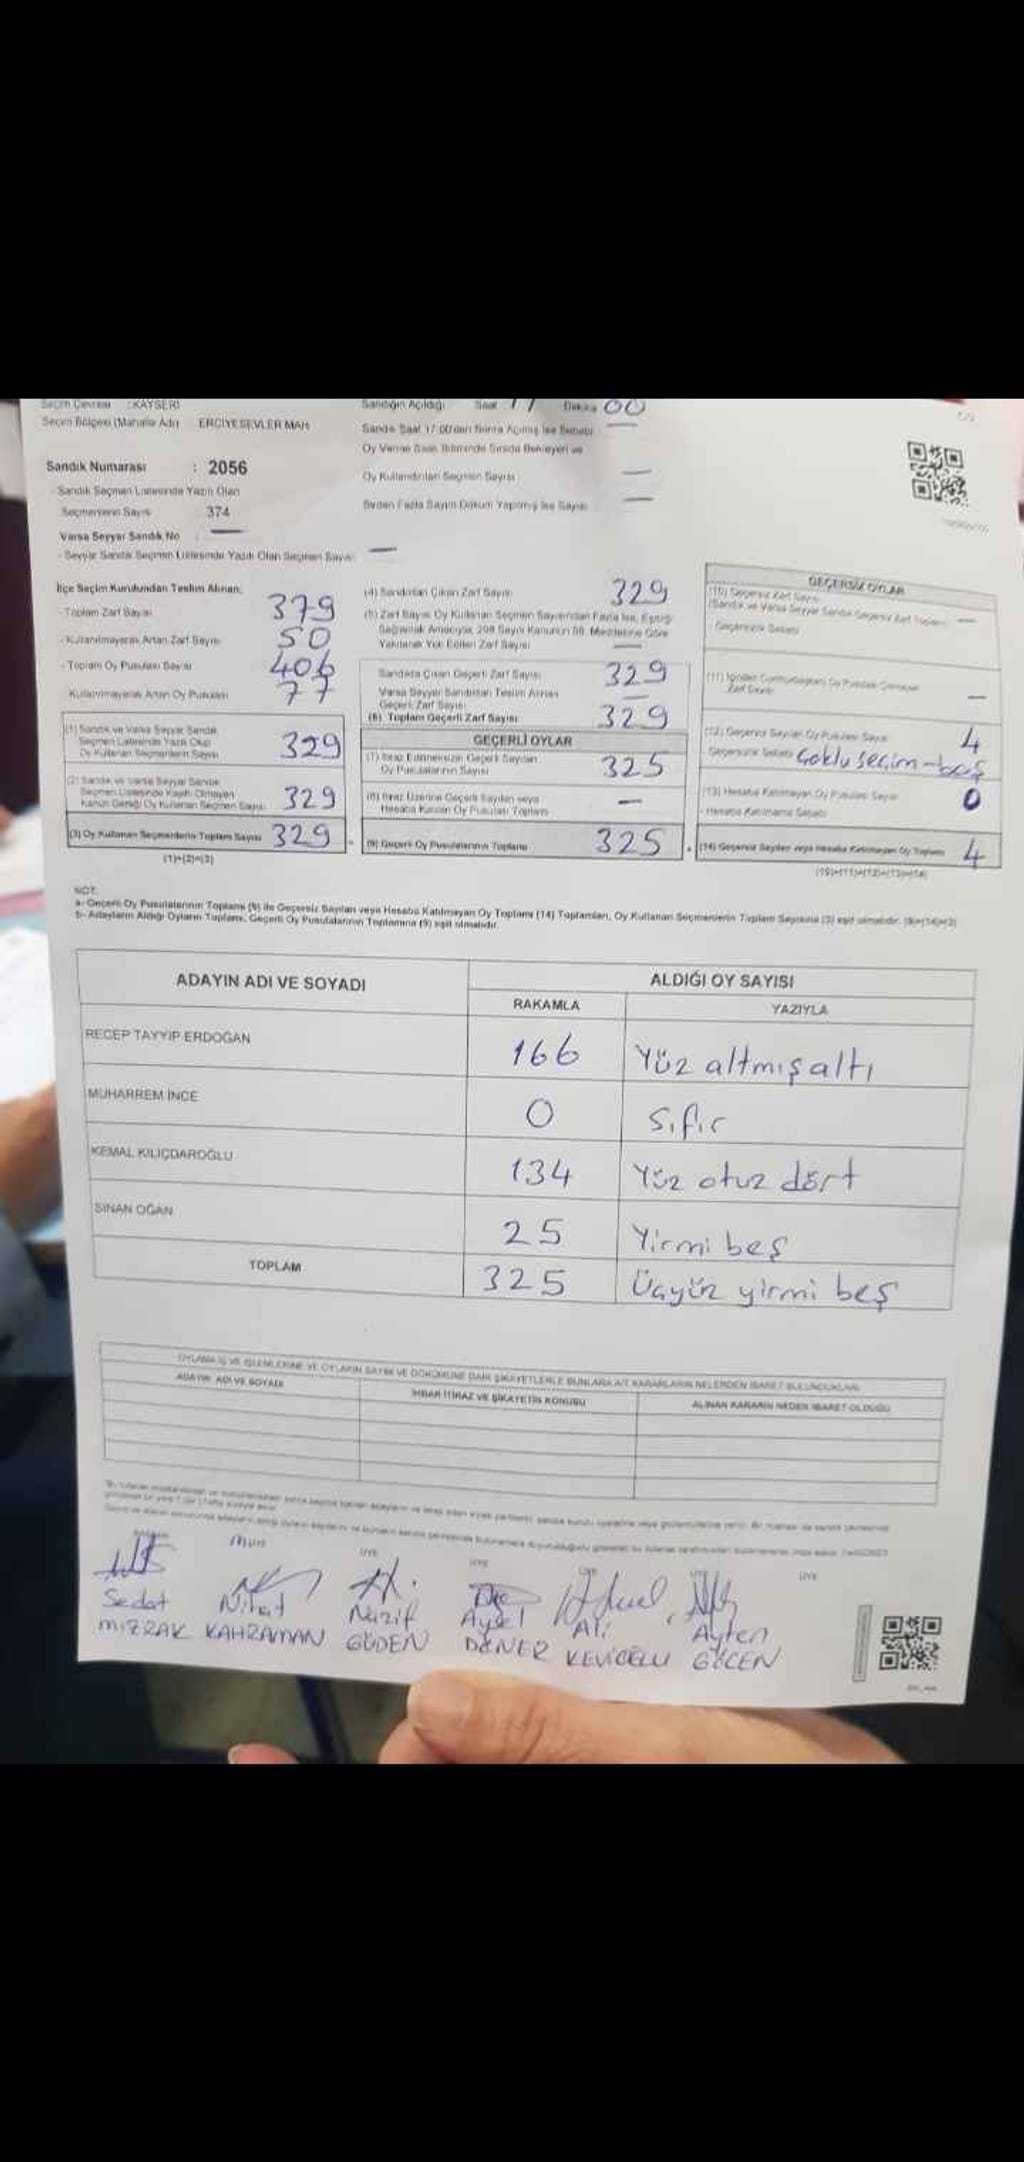 Seçim Çevresi : KAYSERİ
Seçim Bölgesi (Mahalle Adı) ERCİYESEVLER MAH
Sandık Numarası : 2056
- Sandık Seçmen Listesinde Yazılı Olan
Seçmenlerin Sayısı 374
Varsa Seyyar Sandık No : —
- Seyyar Sandık Seçmen Listesinde Yazılı Olan Seçmen Sayısı —
Sandığın Açıldığı Saat 17 Dakika 00
Sandık Saat 17:00'den Sonra Açılmış İse Sebebi —
Oy Verme Saati Bitiminde Sırada Bekleyen ve
Oy Kullandırılan Seçmen Sayısı —
Birden Fazla Sayım Döküm Yapılmış İse Sayısı —
İlçe Seçim Kurulundan Teslim Alınan;
- Toplam Zarf Sayısı 379
- Kullanılmayarak Artan Zarf Sayısı 50
- Toplam Oy Pusulası Sayısı 406
Kullanılmayarak Artan Oy Pusulası 77
(1) Sandık ve Varsa Seyyar Sandık
Seçmen Listesinde Yazılı Olup
Oy Kullanan Seçmenlerin Sayısı 329
(2) Sandık ve Varsa Seyyar Sandık
Seçmen Listesinde Kayıtlı Olmayan
Kanun Gereği Oy Kullanan Seçmen Sayısı 329
(3) Oy Kullanan Seçmenlerin Toplam Sayısı 329
(1)+(2)=(3)
(4) Sandıktan Çıkan Zarf Sayısı 329
(5) Zarf Sayısı Oy Kullanan Seçmen Sayısından Fazla İse, Eşitliği
Sağlamak Amacıyla 298 Sayılı Kanunun 98. Maddesine Göre
Yakılarak Yok Edilen Zarf Sayısı —
Sandıkta Çıkan Geçerli Zarf Sayısı 329
Varsa Seyyar Sandıktan Teslim Alınan
Geçerli Zarf Sayısı —
(6) Toplam Geçerli Zarf Sayısı 329
GEÇERLİ OYLAR
(7) İtiraz Edilmeksizin Geçerli Sayılan
Oy Pusulalarının Sayısı 325
(8) İtiraz Üzerine Geçerli Sayılan veya
Hesaba Katılan Oy Pusulası Toplamı —
(9) Geçerli Oy Pusulalarının Toplamı 325
GEÇERSİZ OYLAR
(10) Geçersiz Zarf Sayısı
(Sandık ve Varsa Seyyar Sandık Geçersiz Zarf Toplamı) —
Geçersizlik Sebebi
(11) İçinden Cumhurbaşkanı Oy Pusulası Çıkmayan
Zarf Sayısı —
(12) Geçersiz Sayılan Oy Pusulası Sayısı 4
Geçersizlik Sebebi Çoklu seçim - boş
(13) Hesaba Katılmayan Oy Pusulası Sayısı 0
Hesaba Katılmama Sebebi
(14) Geçersiz Sayılan veya Hesaba Katılmayan Oy Toplamı 4
(10)+(11)+(12)+(13)=(14)
NOT:
a- Geçerli Oy Pusulalarının Toplamı (9) ile Geçersiz Sayılan veya Hesaba Katılmayan Oy Toplamı (14) Toplamları, Oy Kullanan Seçmenlerin Toplam Sayısına (3) eşit olmalıdır. (9)+(14)=(3)
b- Adayların Aldığı Oyların Toplamı, Geçerli Oy Pusulalarının Toplamına (9) eşit olmalıdır.
ADAYIN ADI VE SOYADI ALDIĞI OY SAYISI
RAKAMLA YAZIYLA
RECEP TAYYİP ERDOĞAN 166 Yüz altmış altı
MUHARREM İNCE 0 Sıfır
KEMAL KILIÇDAROĞLU 134 Yüz otuz dört
SİNAN OĞAN 25 Yirmi beş
TOPLAM 325 Üçyüz yirmi beş
OYLAMA İŞ VE İŞLEMLERİNE VE OYLARIN SAYIM VE DÖKÜMÜNE DAİR ŞİKAYETLERLE BUNLARA AİT KARARLARIN NELERDEN İBARET BULUNDUKLARI
ADAYIN ADI VE SOYADI İHBAR İTİRAZ VE ŞİKAYETİN KONUSU ALINAN KARARIN NEDEN İBARET OLDUĞU
ÜYE ÜYE ÜYE
Sedat Nihat Nazif Aysel Ali Ayten
MIZRAK KAHRAMAN GÜDEN DÖNER GÖCEN